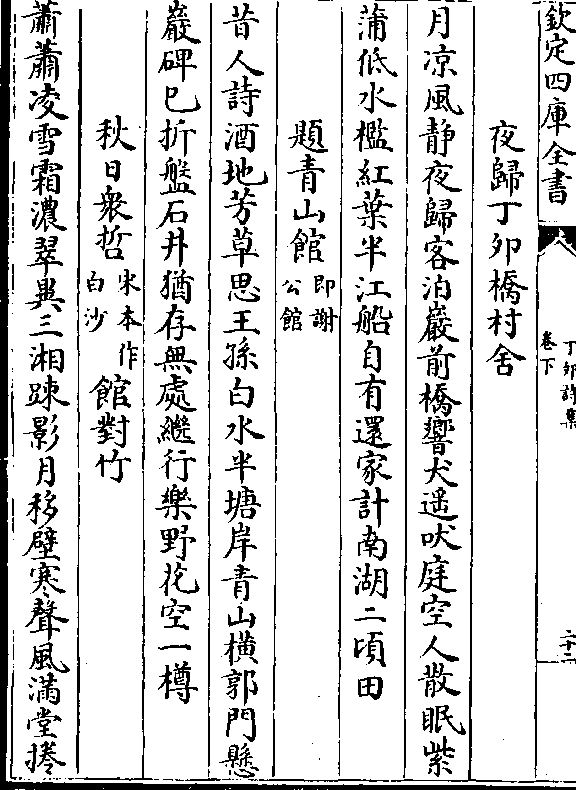 欽定四庫全書
丁卯詩集
卷下
二十二
夜歸丁卯橋村舍
月凉風靜夜歸客泊巖前橋響犬遥吠庭空人散眠紫
蒲低水檻紅葉半江船自有還家計南湖二頃田
題青山館即謝公館
昔人詩酒地芳草思王孫白水半塘岸青山横郭門懸
巖碑已折盤石井猶存無處繼行樂野花空一樽
秋日衆哲宋本作白沙館對竹
蕭蕭凌雪霜濃翠異三湘踈影月移壁寒聲風滿堂捲